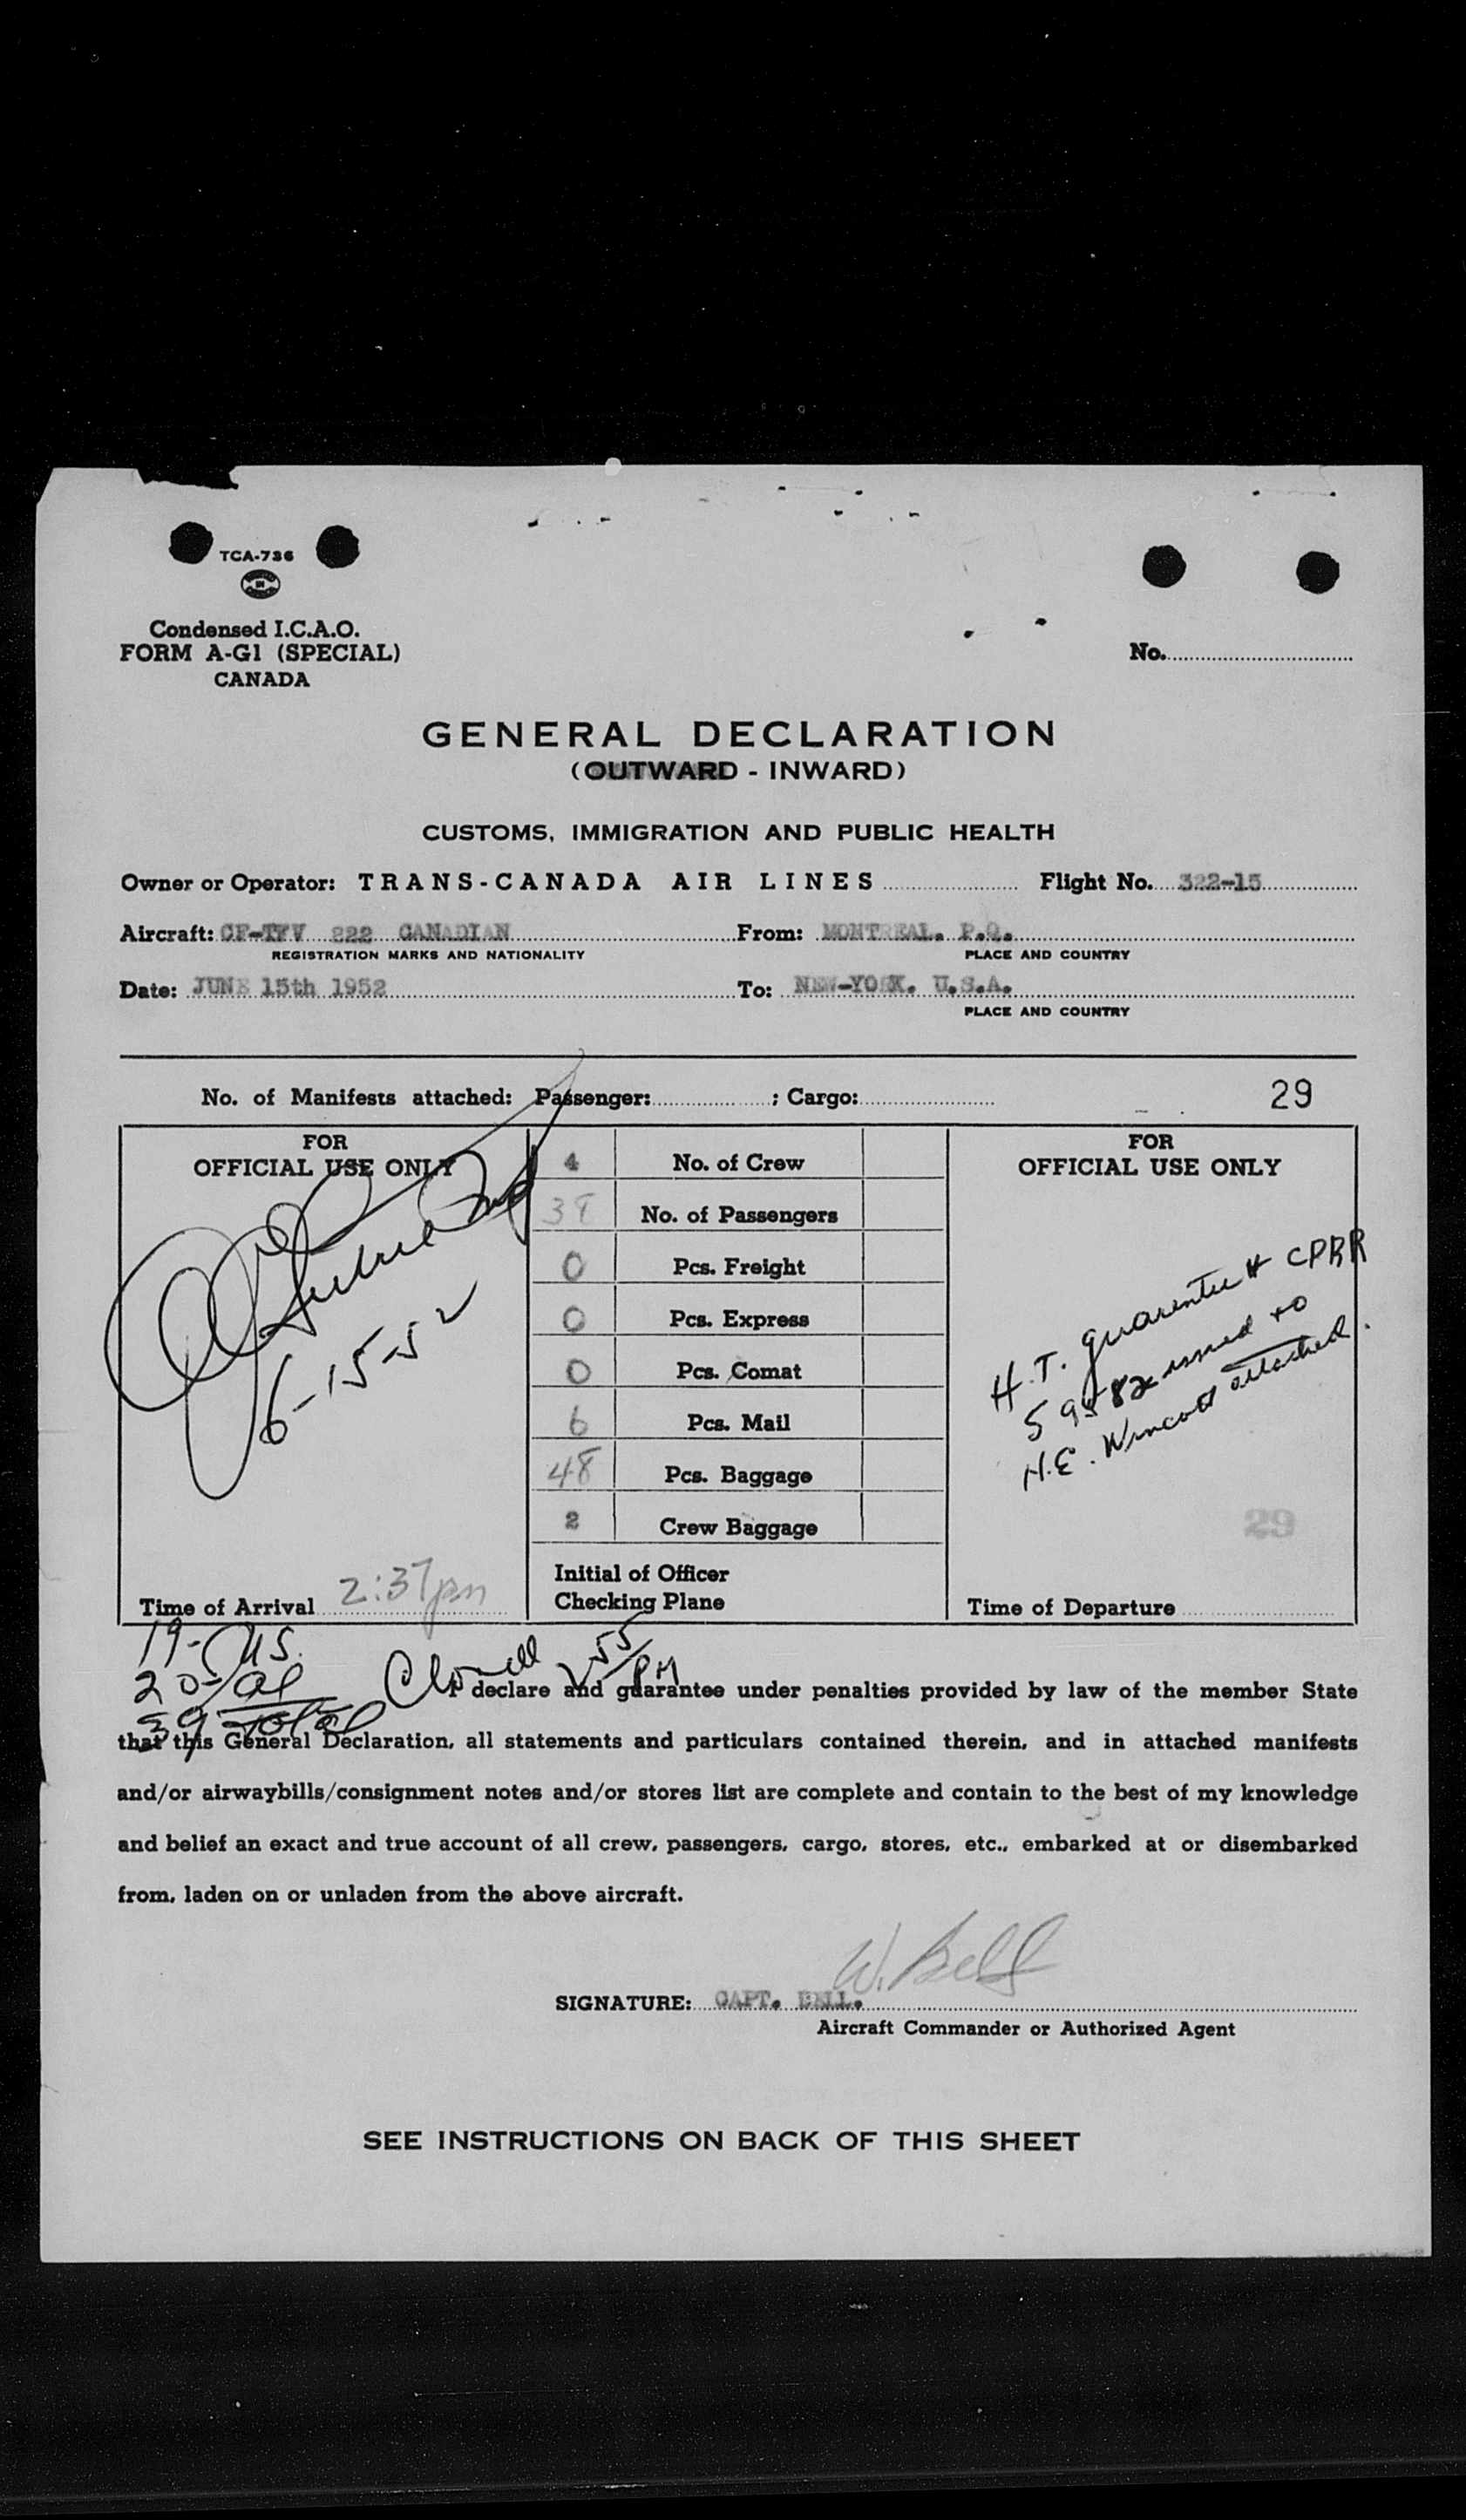 TCA-736
Condensed I.C.A.O.
FORM A-G1 (SPECIAL)
CANADA
No.
GENERAL DECLARATION
(OUTWARD - INWARD)
CUSTOMS, IMMIGRATION AND PUBLIC HEALTH
Owner or Operator: TRANS-CANADA AIR LINES Flight No. 322-15
Aircraft: 222 CANADIAN From: MONTREAL. P.Q.
REGISTRATION MARKS AND NATIONALITY PLACE AND COUNTRY
Date: JUNE 15th 1952 To: NEW-YORK. U.S.A.
PLACE AND COUNTRY
No. of Manifests attached: Passenger: ; Cargo: 29
FOR
OFFICIAL USE ONLY
6-15-52
Time of Arrival 2:37pm
4 No. of Crew
38 No. of Passengers
0 Pcs. Freight
0 Pcs. Express
0 Pcs. Comat
6 Pcs. Mail
48 Pcs. Baggage
2 Crew Baggage
Initial of Officer
Checking Plane
FOR
OFFICIAL USE ONLY
H.T. guarantee # CPRR
issued to
H.E. Wincott attached.
29
Time of Departure
19- US.
20- al
39 Total
255/PM
I declare and guarantee under penalties provided by law of the member State
that this General Declaration, all statements and particulars contained therein, and in attached manifests
and/or airwaybills/consignment notes and/or stores list are complete and contain to the best of my knowledge
and belief an exact and true account of all crew, passengers, cargo, stores, etc., embarked at or disembarked
from, laden on or unladen from the above aircraft.
W. Bell
SIGNATURE: CAPT. BELL.
Aircraft Commander or Authorized Agent
SEE INSTRUCTIONS ON BACK OF THIS SHEET